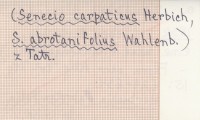 (Senecio carpaticus Herbich,
S. abrotanifolius Wahlenb.)
z Tatr.